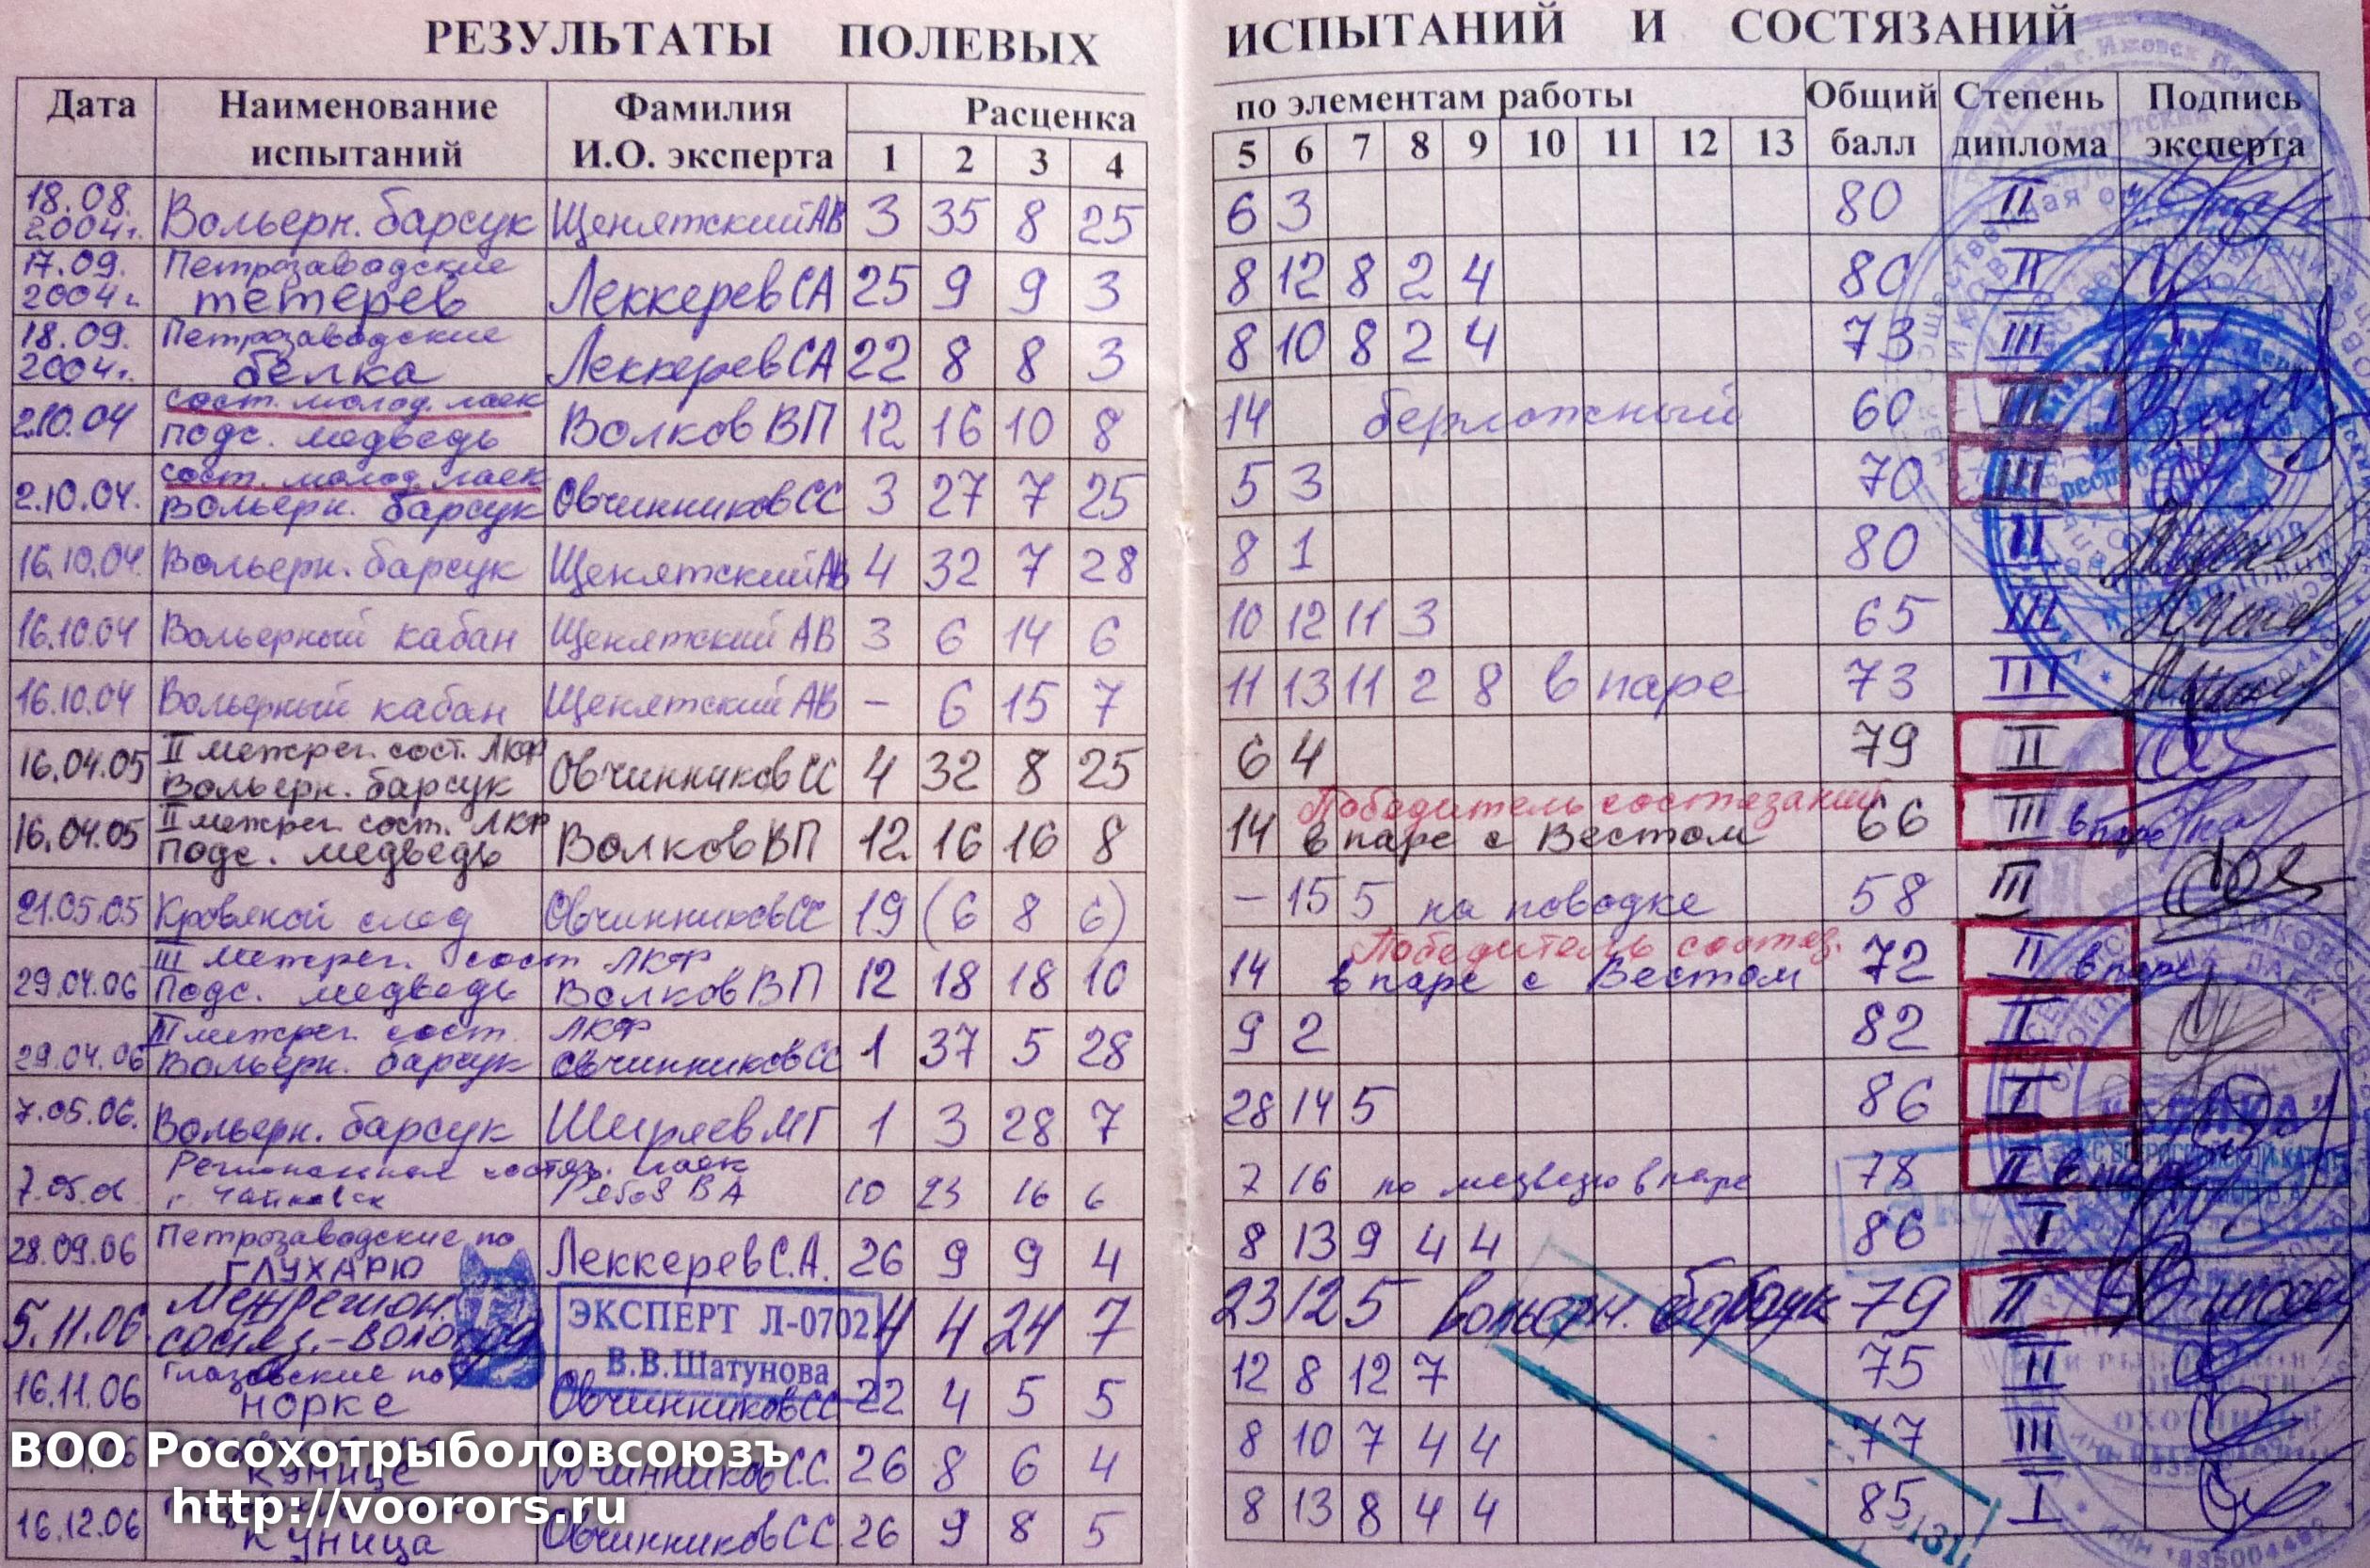 РЕЗУЛЬТАТЫ ПОЛЕВЫХ ИСПЫТАНИЙ И СОСТЯЗАНИЙ
Дата Наименование испытаний Фамилия И.О. эксперта Расценка по элементам работы Общий балл Степень диплома Подпись эксперта
1 2 3 4 5 6 7 8 9 10 11 12 13
18.08.2004г. Вольерн. барсук Щенятский АВ 3 35 8 25 6 3 80 II
17.09.2004г. Петрозаводские тетерев Леккерев СА 25 9 9 3 8 12 8 2 4 80 II
18.09.2004г. Петрозаводские белка Леккерев СА 22 8 8 3 8 10 8 2 4 73 III
2.10.04 сост. молод. лаек подс. медведь Волков ВП 12 16 10 8 14 берложный 60 III
2.10.04. сост. молод. лаек Вольерн. барсук Овчинников СС 3 27 7 25 5 3 70 III
16.10.04. Вольерн. барсук Щенятский АВ 4 32 7 28 8 1 80 II
16.10.04 Вольерный кабан Щенятский АВ 3 6 14 6 10 12 11 3 65 III
16.10.04 Вольерный кабан Щенятский АВ - 6 15 7 11 13 11 2 8 в паре 73 III
16.04.05 II межрег. сост. ЛКФ Вольерн. барсук Овчинников СС 4 32 8 25 6 4 79 II
16.04.05 II межрег. сост. ЛКФ подс. медведь Волков ВП 12 16 16 8 14 Победитель состязаний в паре с Вестом 66 III в паре
21.05.05 Кровяной след Овчинников СС 19 (6 8 6) - 15 5 на поводке 58 III
29.04.06 III межрег. сост ЛКФ Подс. медведь Волков ВП 12 18 18 10 14 Победитель состяз. в паре с Вестом 72 II в паре
29.04.06 III межрег. сост. ЛКФ Вольерн. барсук Овчинников СС 1 37 5 28 9 2 82 I
7.05.06. Вольерн. барсук Ширяев МГ 1 3 28 7 28 14 5 86 I
7.05.06 Региональная состяз. лаек г. Чайковск Рябов ВА 10 23 16 6 7 16 по медведю в паре 78 II в паре
28.09.06 Петрозаводские по ГЛУХАРЮ Леккерев С.А. 26 9 9 4 8 13 9 4 4 86 I
5.11.06. Межрегион. состяз.-Вологда 4 4 24 7 23 12 5 вольерн. барсук 79 II
ЭКСПЕРТ Л-0702
В.В.Шатунова
16.11.06 Глазовские по норке Овчинников СС 22 4 5 5 12 8 12 7 75 II
кунице Овчинников СС. 26 8 6 4 8 10 7 4 4 77 III
16.12.06 куница Овчинников СС. 26 9 8 5 8 13 8 4 4 85 I
ВОО Росохотрыболовсоюзъ
http://voorors.ru